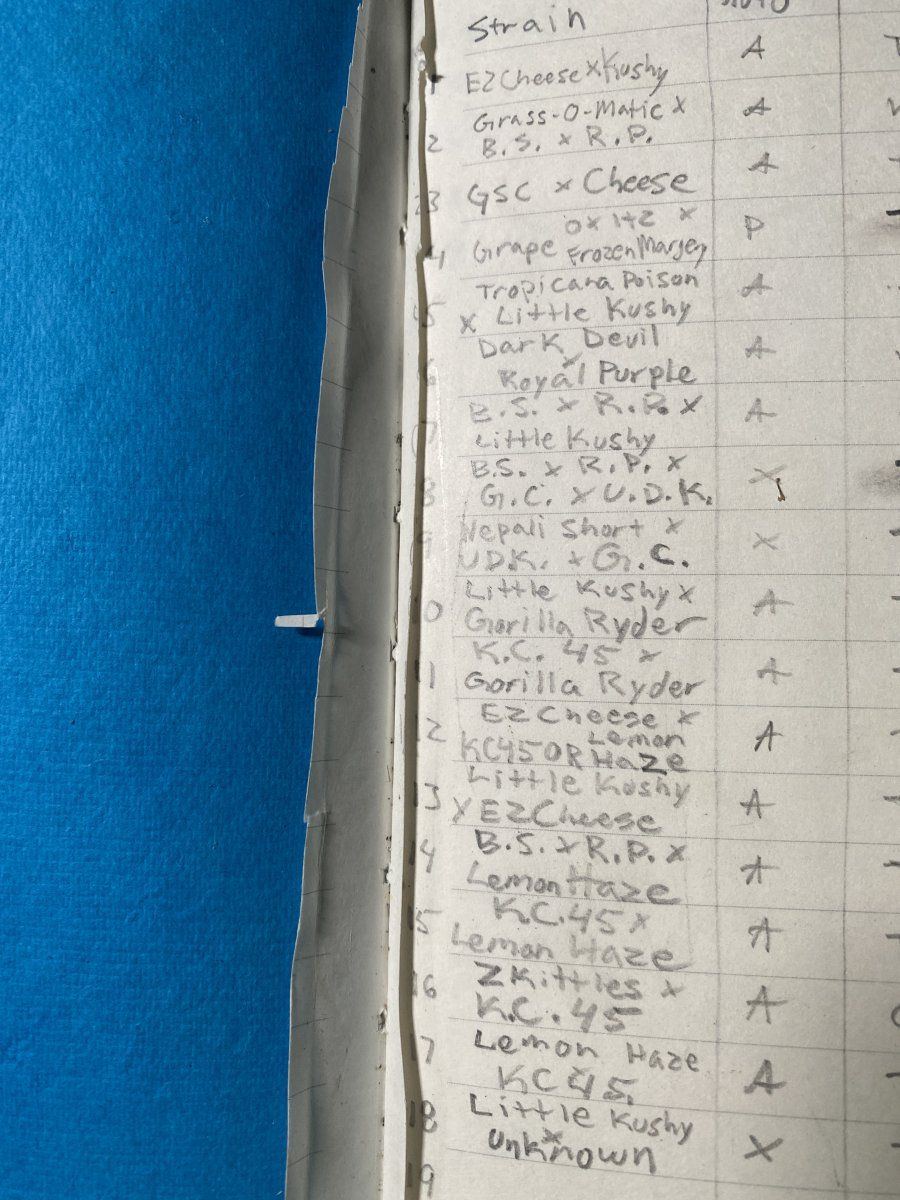 Strain
1 EZ Cheese x Kushy A
Grass-O-Matic x A
2 B.S. x R.P.
3 GSC x Cheese A
OX 1+2 x P
4 Grape Frozen
Tropicana Poison A
5 x Little Kushy
Dark Devil A
x
6 Royal Purple
B.S. x R.P. x A
7 Little Kushy
B.S. x R.P. x X
8 G.C. x U.D.K.
Nepali Short x X
9 UDK. x G.C.
Little Kushy x A
0 Gorilla Ryder
K.C. 45 x A
11 Gorilla Ryder
EZ Cheese x A
2 Lemon
KC45 OR Haze
Little Kushy A
13 X EZ Cheese
B.S. x R.P. x A
14 Lemon Haze
K.C. 45 x A
15 Lemon Haze
Zkittles x A
16 K.C. 45
Lemon Haze A
17 x
KC 45
Little Kushy X
18 x
Unknown
19